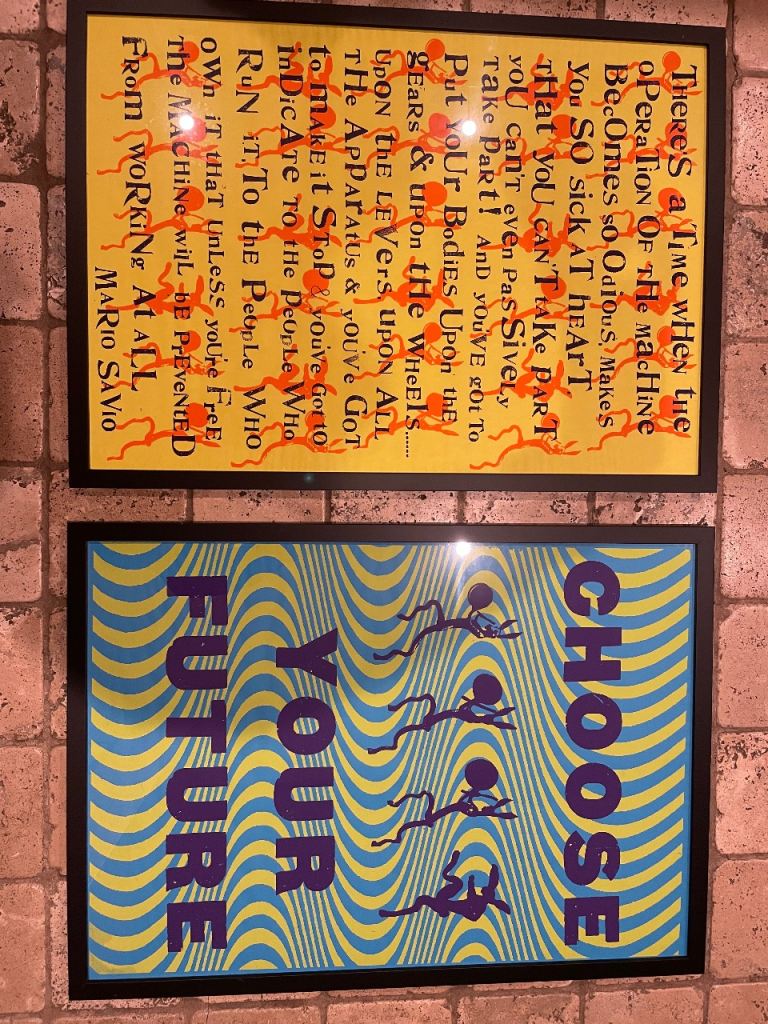 THeRe'S a TiMe wHeN the
oPeRaTioN OF tHe MacHiNe
BecOmes so Odious, Makes
you SO sick AT heArT
tHat yoU CAN'T tAKe pArT
yoU cAn't eveN pasSiveLy
TaKe paRt! AnD you'vE goT To
Put yoUr BodiEs Upon the
gEaRs & upon tHe WHeEls......
UpON the LeVers upON ALL
THe AppaRatUs & yoU'vE GoT
to mAKE it SToP & you've Got to
inDicAte To tHe peopLe WHo
RuN iT, To the PeopLe WHO
oWn iT tHaT UnLeSs you're FreE
The MAcHiNe wiLL bE pReVeNtED
FRom woRKiNg At aLL
MARiO SAViO
CHOOSE
YOUR
FUTURE